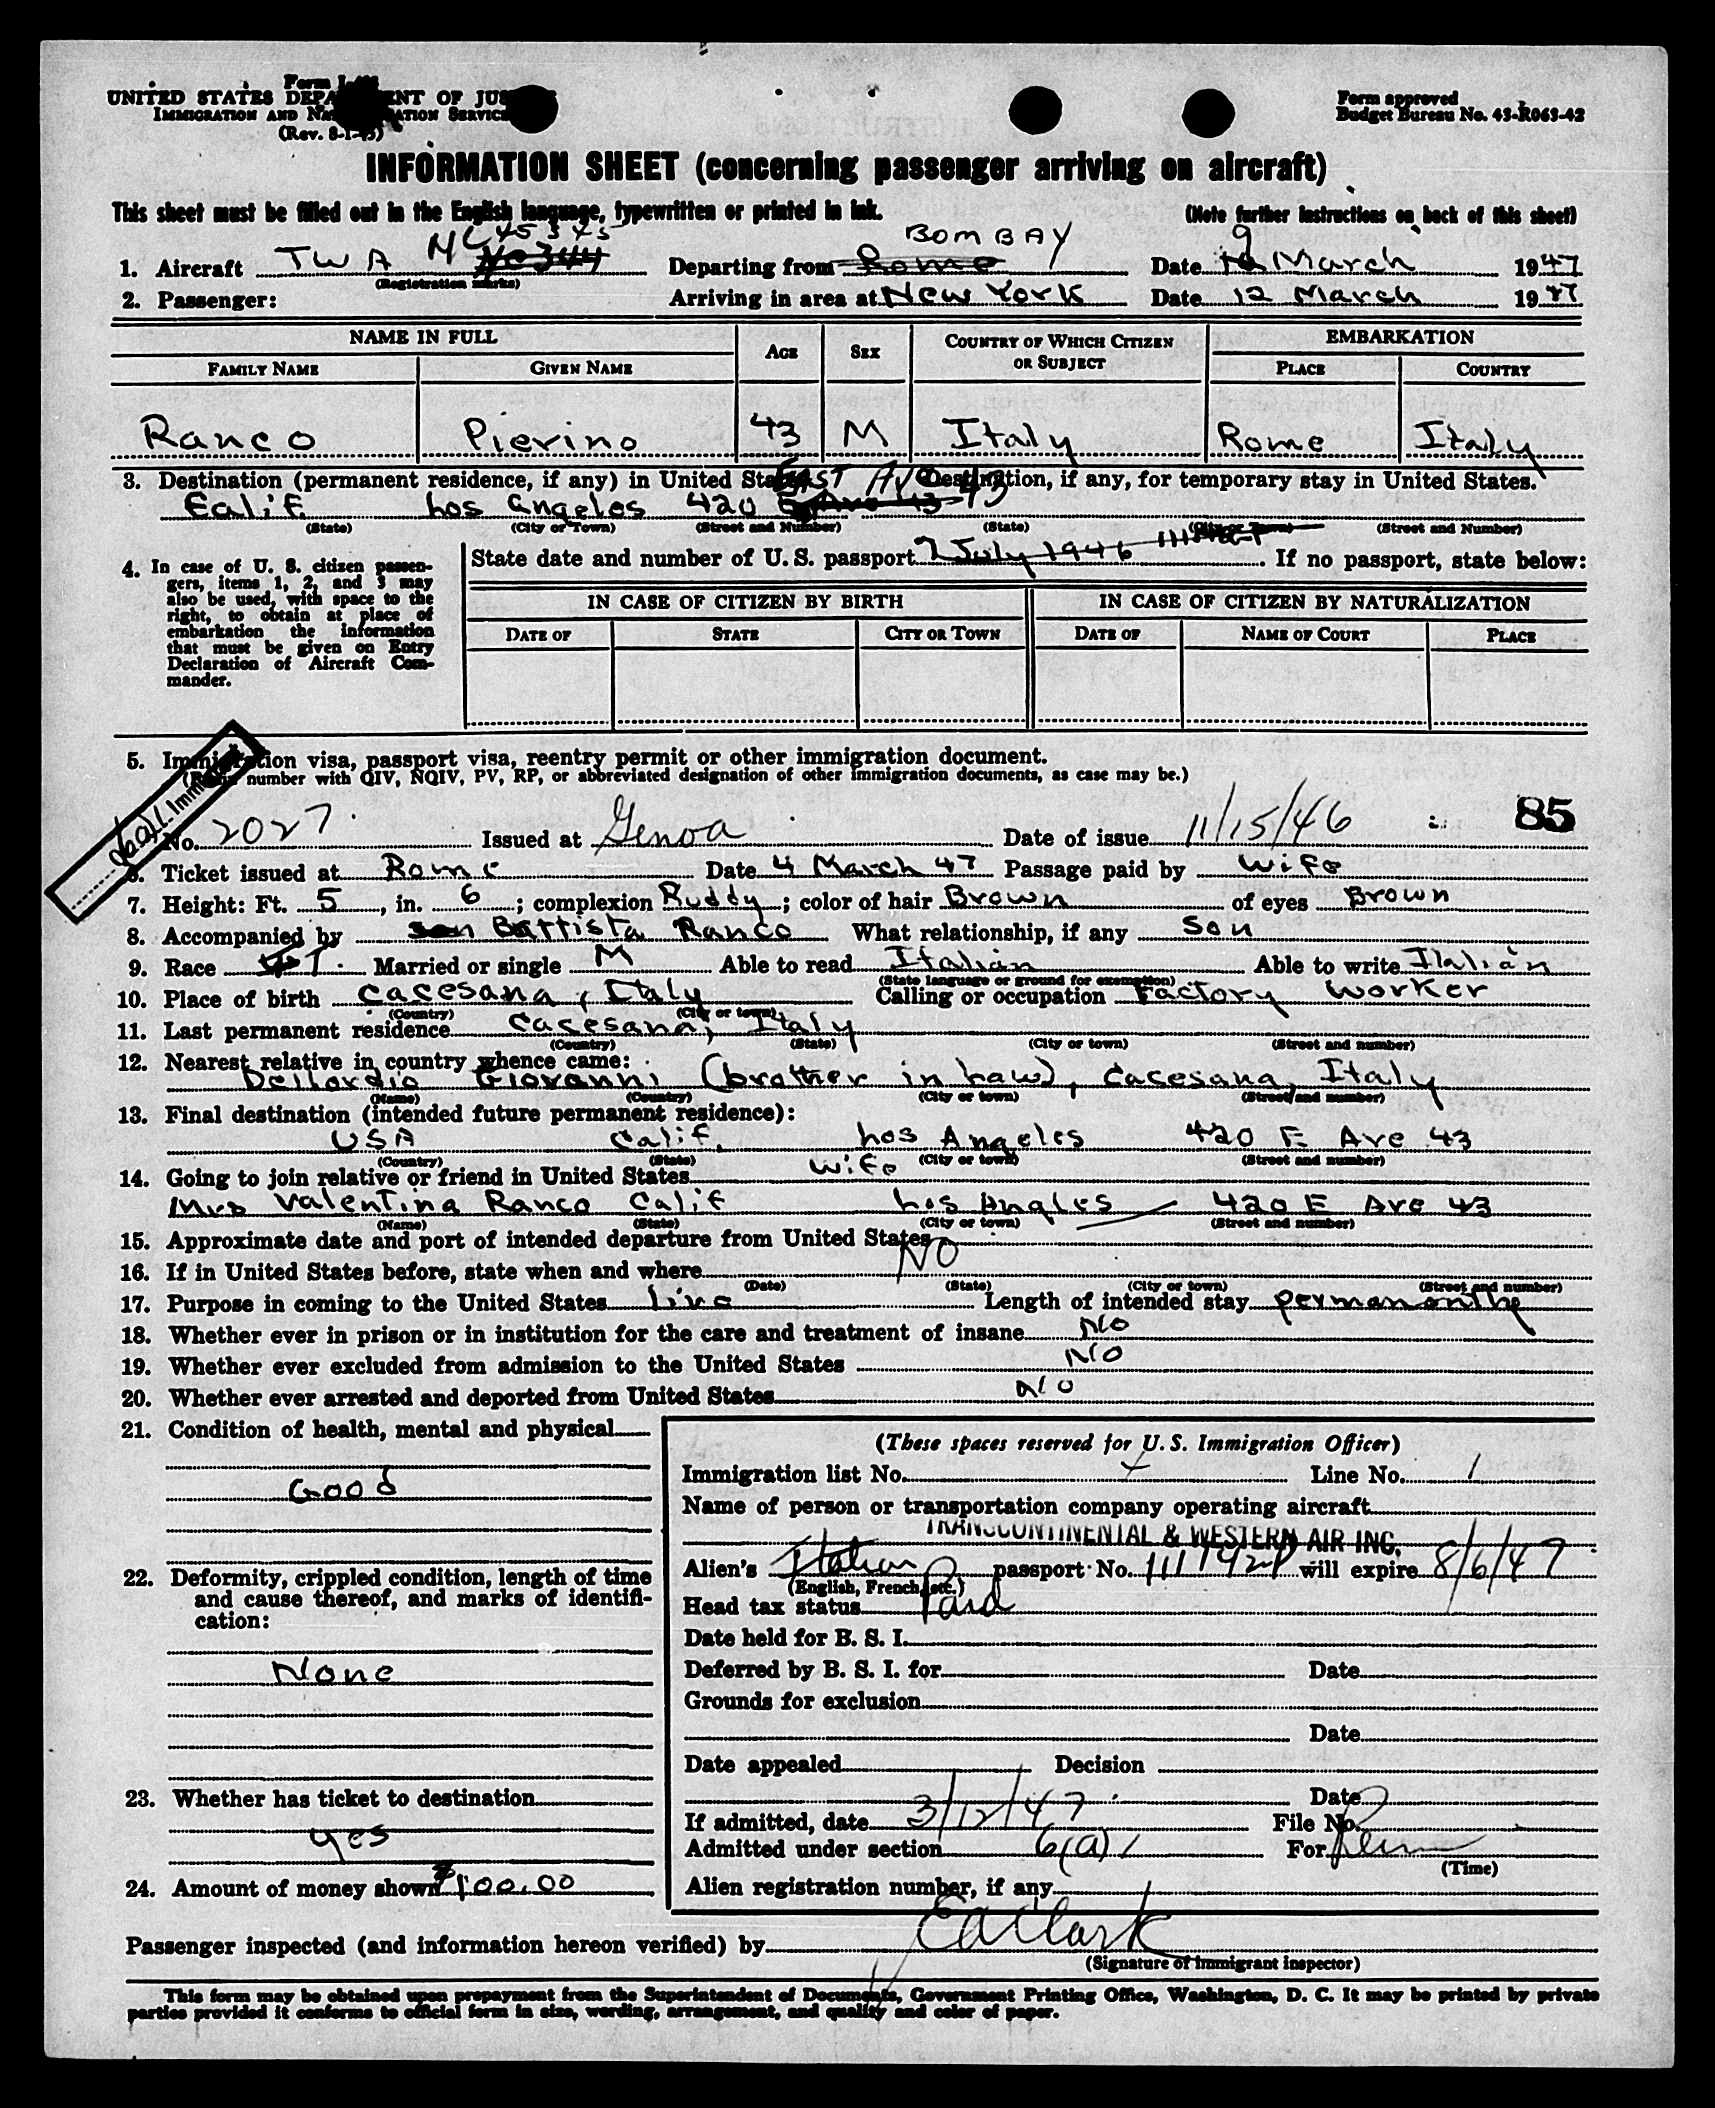 Form I-466
UNITED STATES DEPARTMENT OF JUSTICE
IMMIGRATION AND NATURALIZATION SERVICE
(Rev. 8-1-45)
Form approved
Budget Bureau No. 43-R063-42
INFORMATION SHEET (concerning passenger arriving on aircraft)
This sheet must be filled out in the English language, typewritten or printed in ink. (Note further instructions on back of this sheet)
1. Aircraft TWA NC45345 NC344 Departing from Rome BOMBAY Date 9 March 1947
(Registration marks)
2. Passenger: Arriving in area at New York Date 12 March 1947
NAME IN FULL AGE SEX COUNTRY OF WHICH CITIZEN OR SUBJECT EMBARKATION
FAMILY NAME GIVEN NAME PLACE COUNTRY
Ranco Pierino 43 M Italy Rome Italy
3. Destination (permanent residence, if any) in United States. Destination, if any, for temporary stay in United States.
Calif. Los Angeles 420 East Ave 43
(State) (City or Town) (Street and Number) (State) (City or Town) (Street and Number)
4. In case of U. S. citizen passengers, items 1, 2, and 3 may also be used, with space to the right, to obtain at place of embarkation the information that must be given on Entry Declaration of Aircraft Commander.
State date and number of U. S. passport 7 July 1946 If no passport, state below:
IN CASE OF CITIZEN BY BIRTH IN CASE OF CITIZEN BY NATURALIZATION
DATE OF STATE CITY OR TOWN DATE OF NAME OF COURT PLACE
5. Immigration visa, passport visa, reentry permit or other immigration document.
number with QIV, NQIV, PV, RP, or abbreviated designation of other immigration documents, as case may be.)
85
No. 2027 Issued at Genoa Date of issue 11/15/46
6. Ticket issued at Rome Date 4 March 47 Passage paid by Wife
7. Height: Ft. 5, in. 6; complexion Ruddy; color of hair Brown of eyes Brown
8. Accompanied by son Battista Ranco What relationship, if any Son
9. Race IT. Married or single M Able to read Italian Able to write Italian
(State language or ground for exemption)
10. Place of birth Cacesana, Italy Calling or occupation Factory Worker
(Country) (City or town)
11. Last permanent residence Cacesana, Italy
(Country) (State) (City or town) (Street and number)
12. Nearest relative in country whence came:
Giovanni (brother in Law), Cacesana, Italy
(Name) (Country) (City or town) (Street and number)
13. Final destination (intended future permanent residence):
USA Calif. Los Angeles 420 E Ave 43
(Country) (State) (City or town) (Street and number)
14. Going to join relative or friend in United States Wife
Mrs Valentina Ranco Calif Los Angles 420 E Ave 43
(Name) (State) (City or town) (Street and number)
15. Approximate date and port of intended departure from United States
16. If in United States before, state when and where NO
(Date) (State) (City or town) (Street and number)
17. Purpose in coming to the United States live Length of intended stay permanently
18. Whether ever in prison or in institution for the care and treatment of insane No
19. Whether ever excluded from admission to the United States No
20. Whether ever arrested and deported from United States No
21. Condition of health, mental and physical
Good
22. Deformity, crippled condition, length of time and cause thereof, and marks of identification:
None
23. Whether has ticket to destination
yes
24. Amount of money shown $100.00
(These spaces reserved for U. S. Immigration Officer)
Immigration list No. Line No. 1
Name of person or transportation company operating aircraft
TRANSCONTINENTAL & WESTERN AIR INC.
Alien's Italian passport No. 111142P will expire 8/6/47
(English, French, etc.)
Head tax status Paid
Date held for B. S. I.
Deferred by B. S. I. for Date
Grounds for exclusion
Date
Date appealed Decision
Date
If admitted, date 3/12/47 File No.
Admitted under section 6(a)1 For Perm
(Time)
Alien registration number, if any
Passenger inspected (and information hereon verified) by EA Clark
(Signature of immigrant inspector)
This form may be obtained upon prepayment from the Superintendent of Documents, Government Printing Office, Washington, D. C. It may be printed by private
parties provided it conforms to official form in size, wording, arrangement, and quality and color of paper.